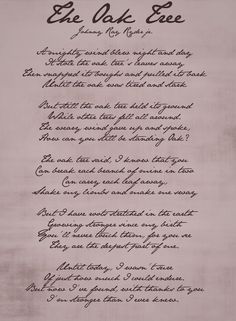 The Oak Tree
Johnny Ray Ryder jr.
A mighty wind blew night and day
It stole the oak tree's leaves away
Then snapped its boughs and pulled its bark
Until the oak was tired and stark
But still the oak tree held its ground
While other trees fell all around
The weary wind gave up and spoke,
How can you still be standing Oak?
The oak tree said, I know that you
Can break each branch of mine in two
Can carry each leaf away,
Shake my limbs and make me sway
But I have roots stretched in the earth
Growing stronger since my birth
You'll never touch them, for you see
They are the deepest part of me.
Until today, I wasn't sure
Of just how much I could endure.
But now I've found, with thanks to you
I'm stronger than I ever knew.